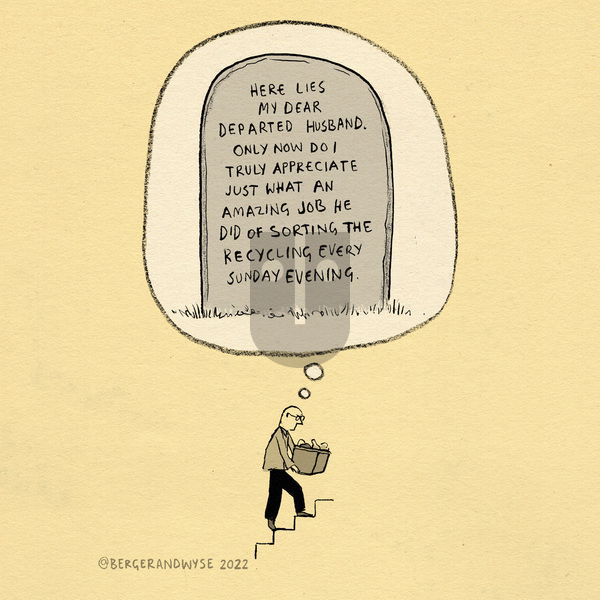 HERE LIES
MY DEAR
DEPARTED HUSBAND.
ONLY NOW DO I
TRULY APPRECIATE
JUST WHAT AN
AMAZING JOB HE
DID OF SORTING THE
RECYCLING EVERY
SUNDAY EVENING.
©BERGERANDWYSE 2022